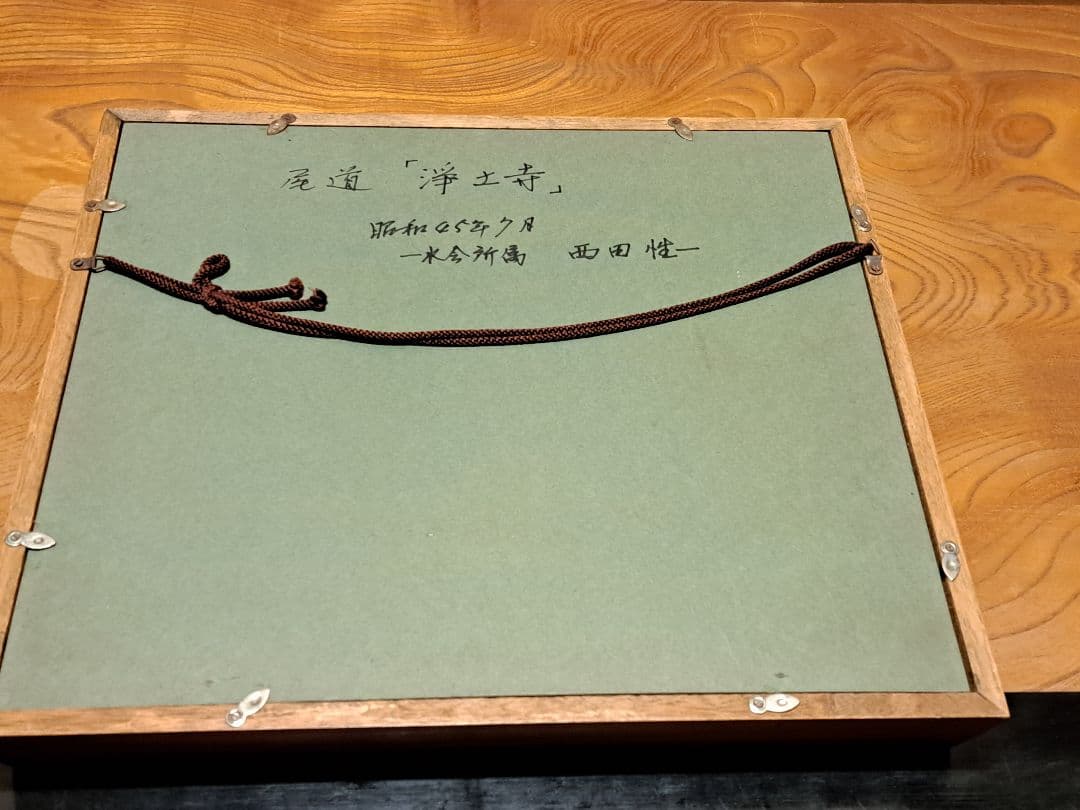 尾道 「浄土寺」
昭和45年7月
一水会所属 西田性一